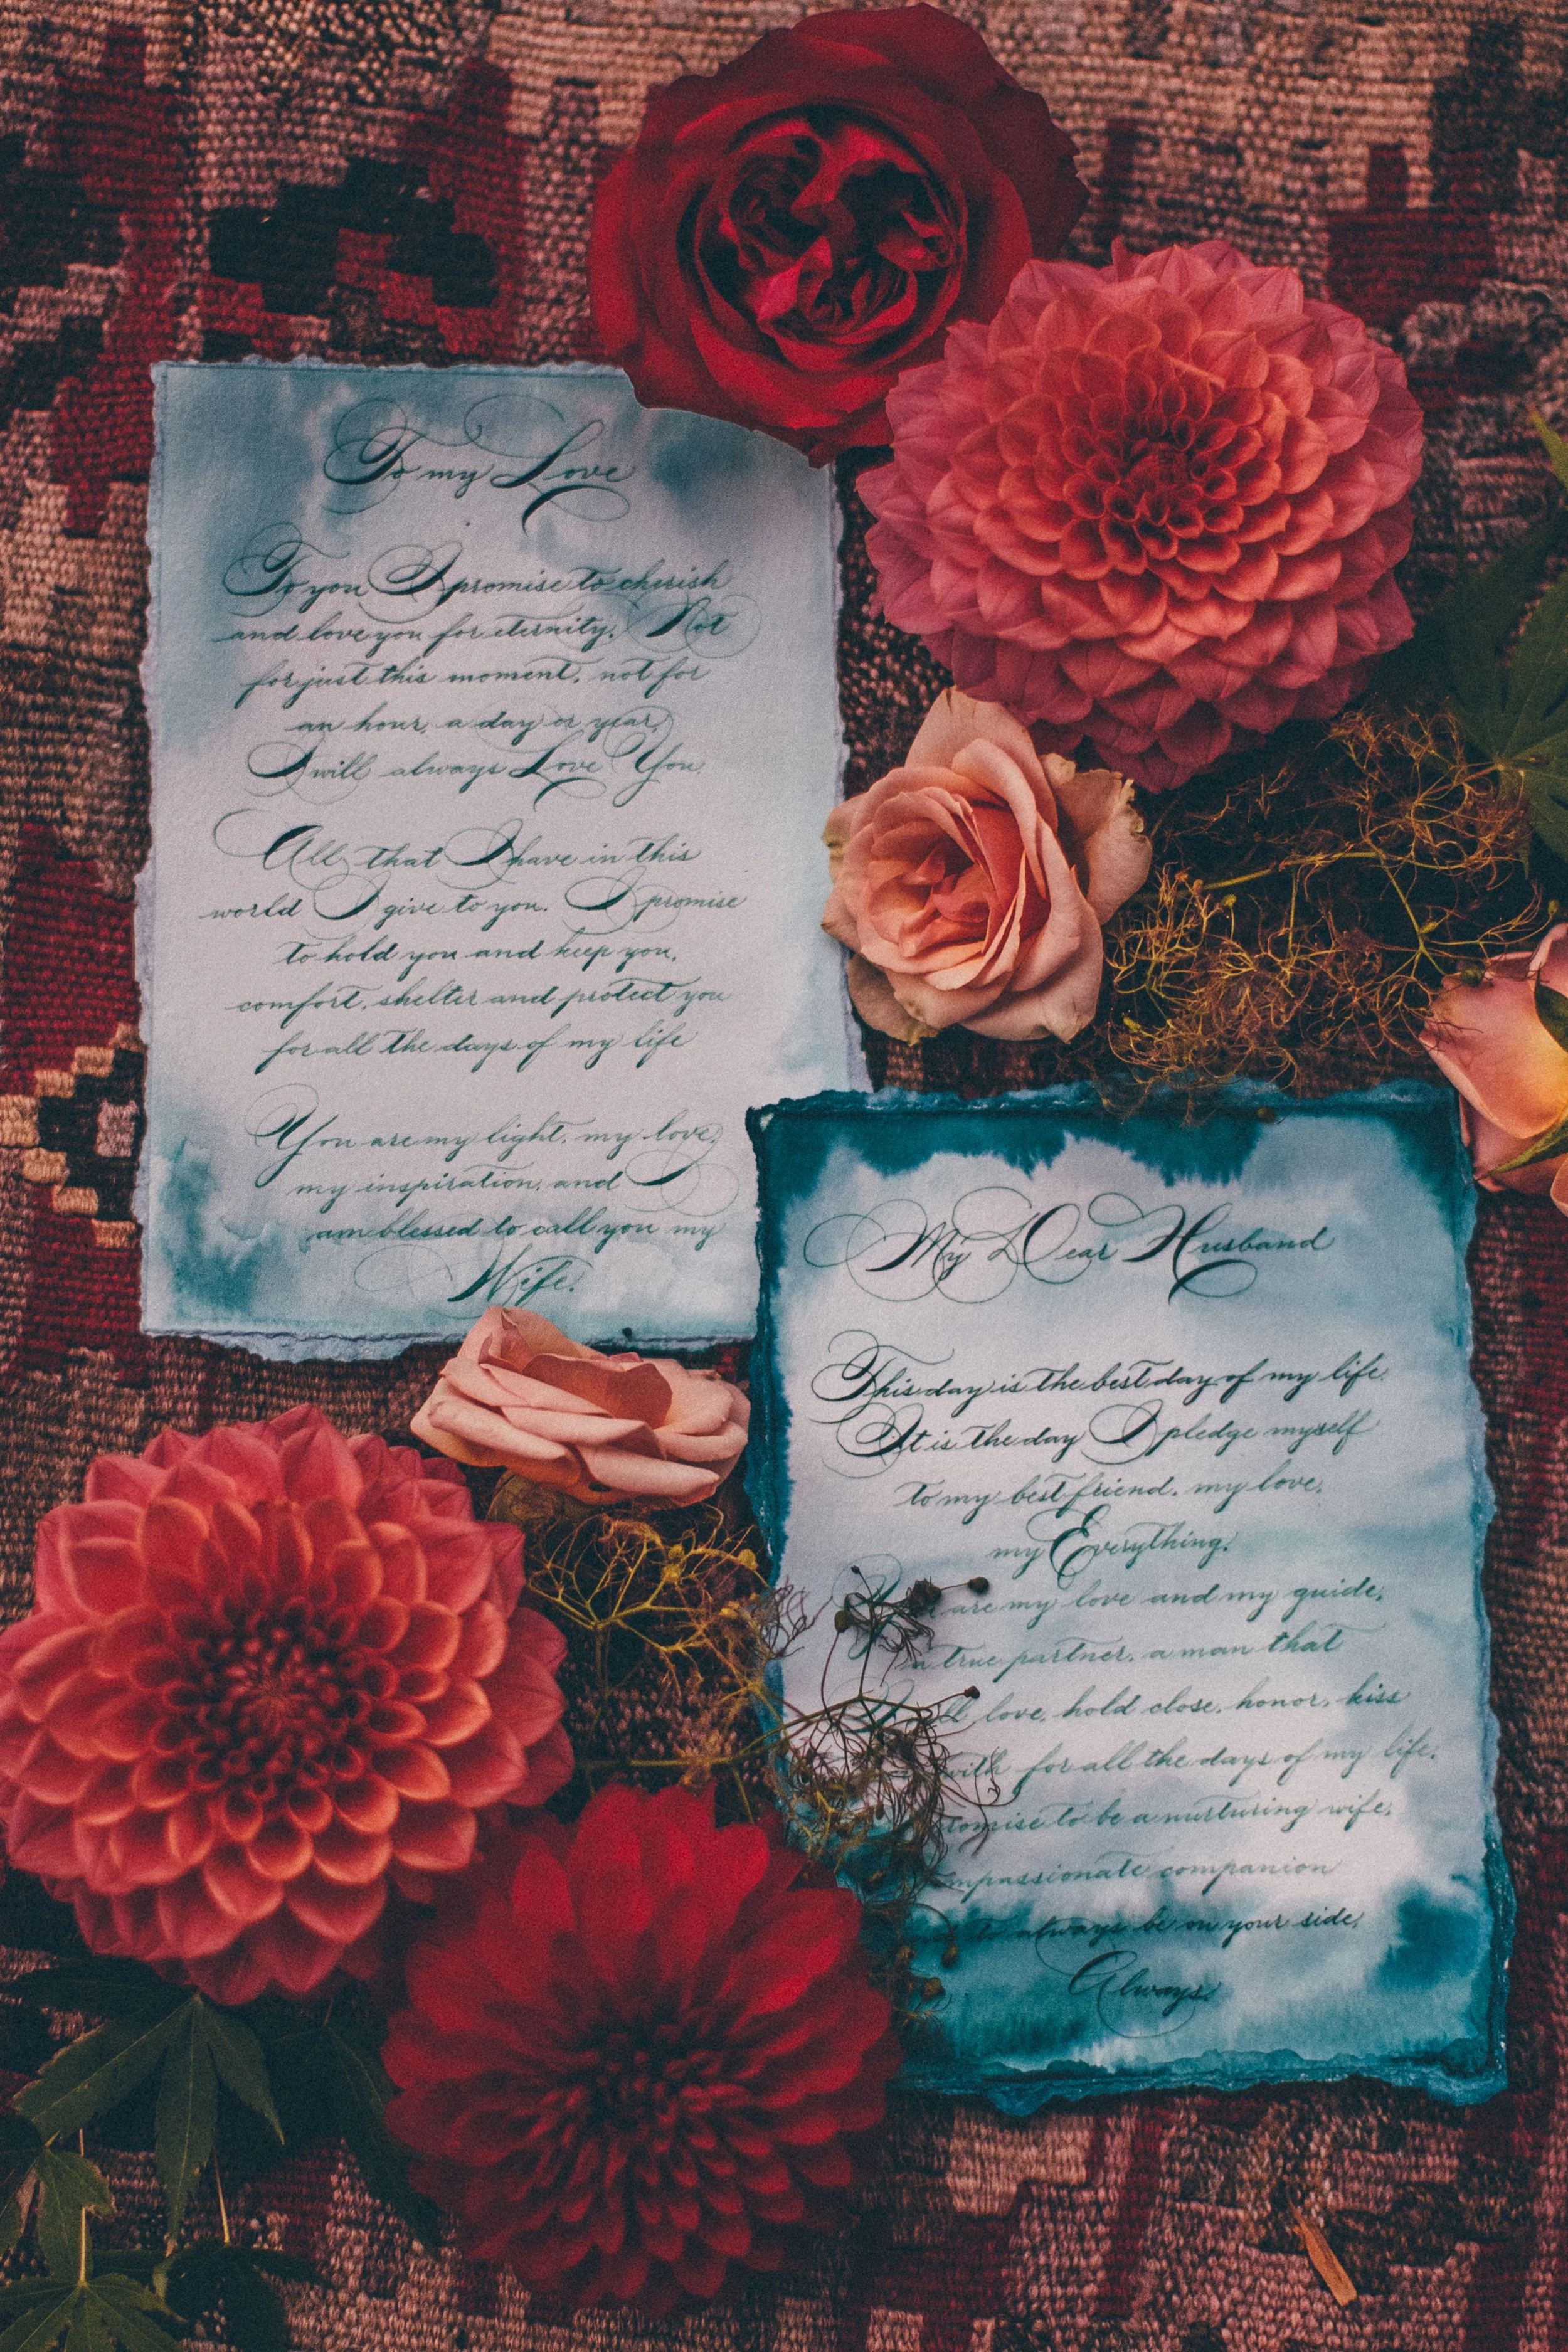 To my Love
To you I promise to cherish
and love you for eternity. Not
for just this moment, not for
an hour, a day or year,
I will always Love You.
All that I have in this
world I give to you. I promise
to hold you and keep you,
comfort, shelter and protect you
for all the days of my life
You are my light, my love,
my inspiration, and I
am blessed to call you my
Wife.
My Dear Husband
This day is the best day of my life.
It is the day I pledge myself
to my best friend, my love,
my Everything.
are my love and my guide,
a true partner, a man that
love, hold close, honor, kiss
with for all the days of my life.
to be a nurturing wife,
companion
to always be on your side,
Always.